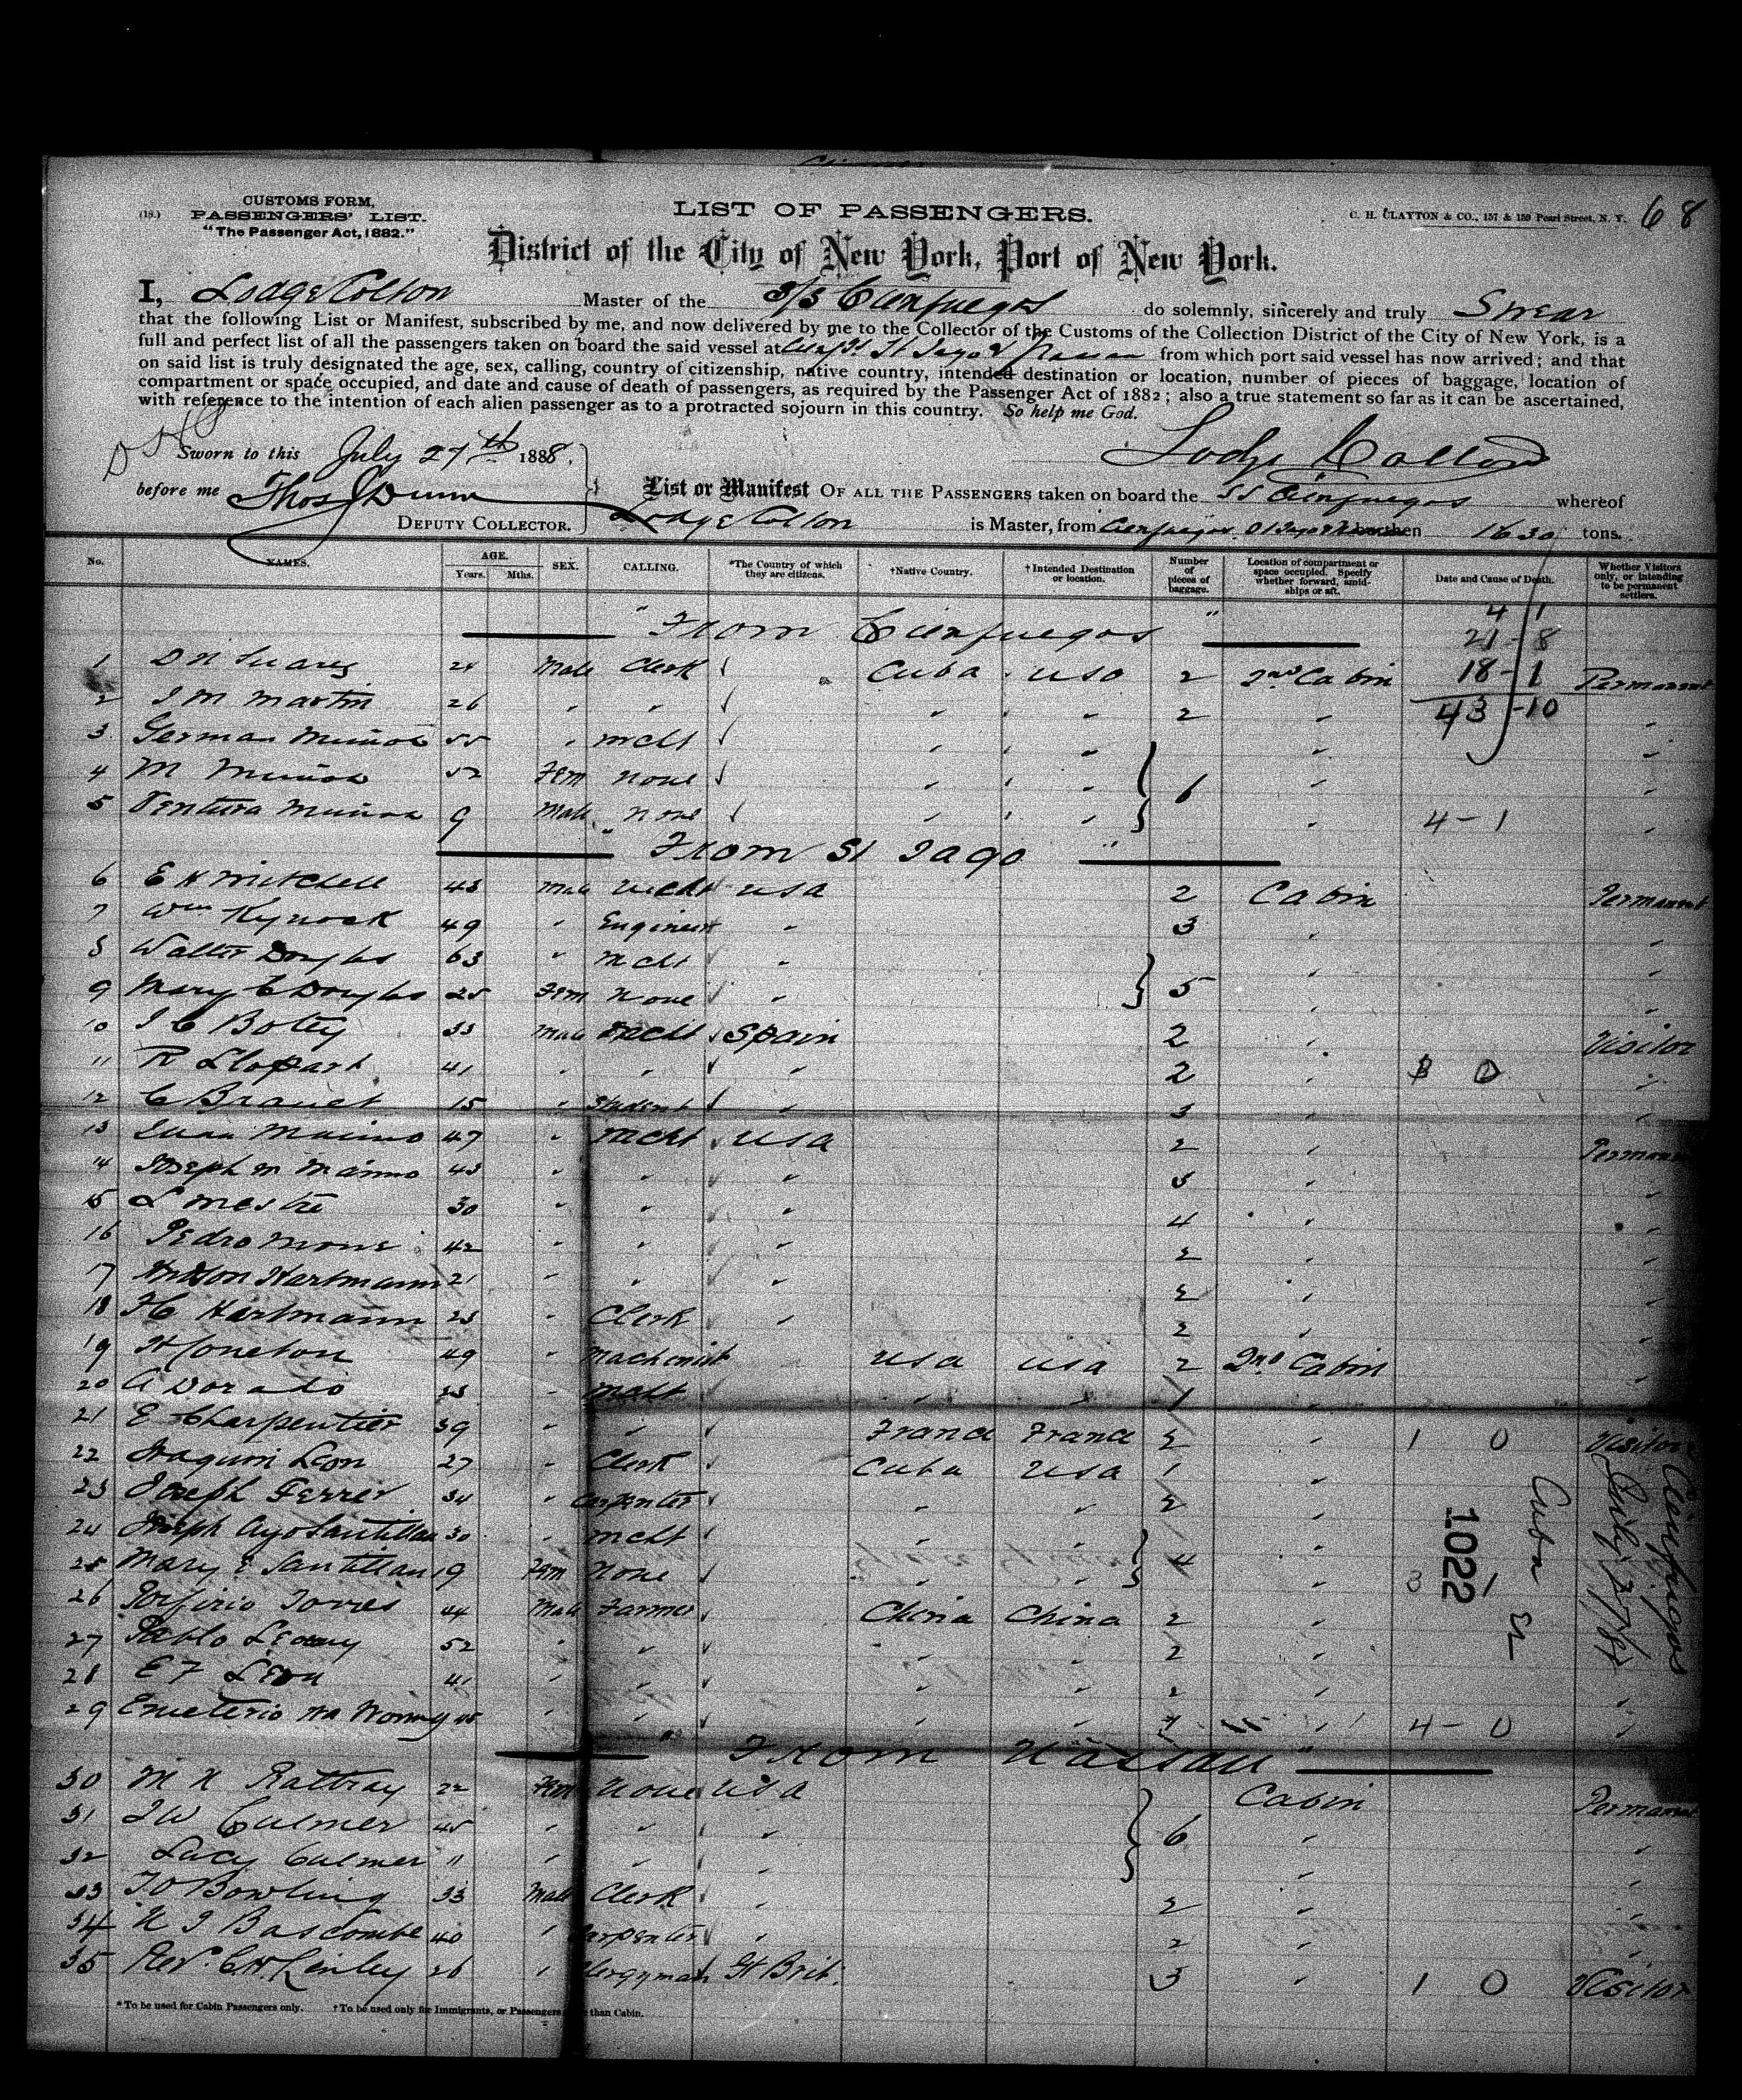 68
CUSTOMS FORM,
(18.) PASSENGERS' LIST.
"The Passenger Act, 1882."
LIST OF PASSENGERS.
C. H. CLAYTON & CO., 157 & 159 Pearl Street, N. Y.
District of the City of New York, Port of New York.
I, Lodge Colton Master of the S/S Cienfuegos do solemnly, sincerely and truly Swear
that the following List or Manifest, subscribed by me, and now delivered by me to the Collector of the Customs of the Collection District of the City of New York, is a
full and perfect list of all the passengers taken on board the said vessel at St Iago & Nassau from which port said vessel has now arrived; and that
on said list is truly designated the age, sex, calling, country of citizenship, native country, intended destination or location, number of pieces of baggage, location of
compartment or space occupied, and date and cause of death of passengers, as required by the Passenger Act of 1882; also a true statement so far as it can be ascertained,
with reference to the intention of each alien passenger as to a protracted sojourn in this country. So help me God.
Lodge Colton
Sworn to this July 27th 1888.
before me Thos J Dunn
DEPUTY COLLECTOR.
List or Manifest OF ALL THE PASSENGERS taken on board the SS Cienfuegos whereof
Lodge Colton is Master, from Cienfuegos, burthen 1630 tons.
No. NAMES. AGE. Years. Mths. SEX. CALLING. *The Country of which they are citizens. †Native Country. †Intended Destination or location. Number of pieces of baggage. Location of compartment or space occupied. Specify whether forward, amidships or aft. Date and Cause of Death. Whether Visitors only, or intending to be permanent settlers.
"From Cienfuegos" 4 1
21-8
1 D N Suarez 24 Male Clerk Cuba USA 2 2nd Cabin 18-1 Permanent
2 J M Martin 26 " " " " " 2 " 43-10 "
3 German Muñoz 55 " Mcht " " " " "
4 M Muñoz 52 Fem None " " " 1 " "
5 Ventura Muñoz 9 Male None " " " " 4-1 "
"From St Iago"
6 E H Mitchell 43 Male Mcht USA 2 Cabin Permanent
7 Wm Kynock 49 " Engineer " 3 " "
8 Walter Douglas 63 " Mcht " " "
9 Mary C Douglas 25 Fem None " 5 " "
10 J C Botey 33 Male Mcht Spain 2 " Visitor
11 R Llopart 41 " " " 2 " 3 0 "
12 C Brauet 15 " Student " 3 " "
13 47 " Mcht USA 2 " Permanent
14 Joseph M 43 " " " " "
15 L Mestre 30 " " " 4 " "
16 Pedro Mone 42 " " " 2 " "
17 Hartmann 21 " " " 2 " "
18 H C Hartmann 23 " Clerk " 2 " "
19 49 " Machinist USA USA 2 2nd Cabin "
20 A Dorado 23 " Mcht " " 1 " "
21 E Charpentier 39 " " France France 2 " 1 0 Visitor
22 Joaquin Leon 27 " Clerk Cuba USA 1 "
23 Joseph Ferrer 34 " Carpenter " " 2 "
24 Joseph Ayo Santillan 30 " Mcht " " "
25 Mary E Santillan 19 Fem None " " 4 " 3 1
26 Porfirio Torres 44 Male Farmer China China 2 "
27 Pablo 52 " " " " 2 "
28 E F Leon 41 " " " " 2 " "
29 Emeterio 45 " " " " " 4-0 "
"From Nassau"
30 M K Rattray 22 Fem None USA Cabin Permanent
31 J W Culmer 45 " " " 6 " "
32 Lucy Culmer 11 " " " " "
33 T O Bowling 33 Male Clerk " 2 " "
34 N J Bascombe 40 " Carpenter " 2 " "
35 Rev. C H Linley 26 " Clergyman Gt Brit. 3 " 1 0 Visitor
Cienfuegos
July 27/88
Cuba
1022
*To be used for Cabin Passengers only. †To be used only for Immigrants, or Passengers than Cabin.